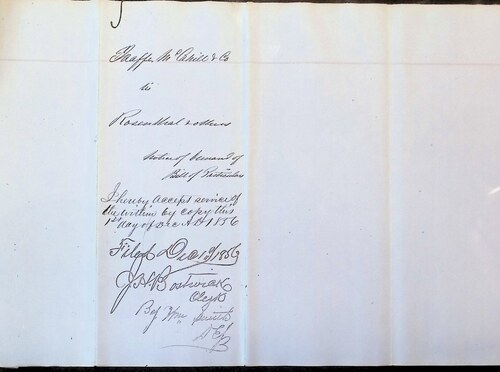 Taaffe McCahill & Co
vs
Rosenthal & others
Notice of Demand of
Bill of Particulars
I hereby accept service of
the within by copy this
1st day of Dec A D 1856
Filed Dec 1st 1856
J. H. Bostwick
Clerk
By Wm Smith
D C